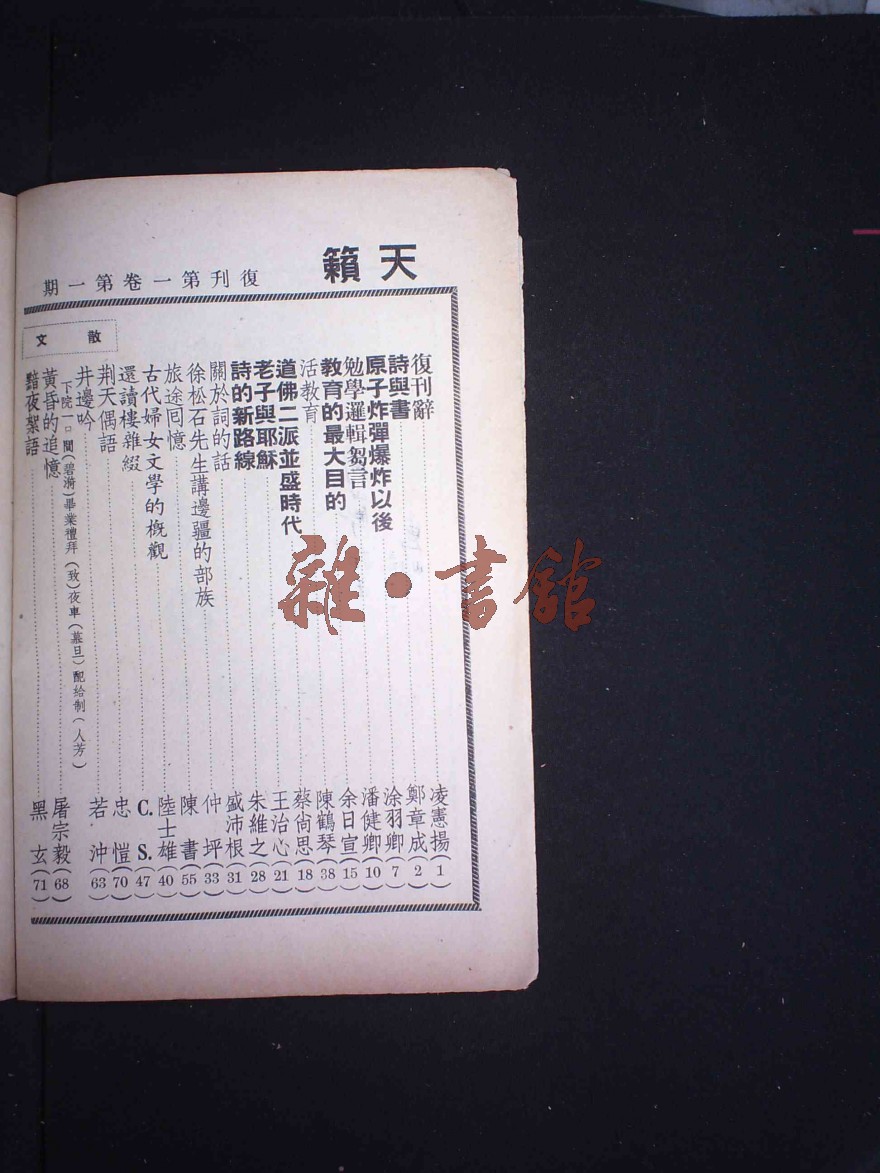 天籟
復刊第一卷第一期
復刊辭 凌憲揚(1)
詩與書 鄭章成(2)
原子炸彈爆炸以後 涂羽卿(7)
勉學邏輯芻言 潘健卿(10)
教育的最大目的 余日宣(15)
活教育 陳鶴琴(38)
道佛二派並盛時代 蔡尚思(18)
老子與耶穌 王治心(21)
詩的新路線 朱維之(28)
關於詞的話 盛沛根(31)
徐松石先生講邊疆的部族 仲坪(33)
旅途回憶 陳書(55)
古代婦女文學的概觀 陸士雄(40)
還讀樓雜綴 C.S.(47)
荆天偶語 忠愷(70)
井邊吟 若沖(63)
散文
下院一口聞(碧漪)畢業禮拜(致)夜車(慕旦)配給制(人芳)
黃昏的追憶 屠宗毅(68)
黯夜絮語 黑玄(71)
雜·書館